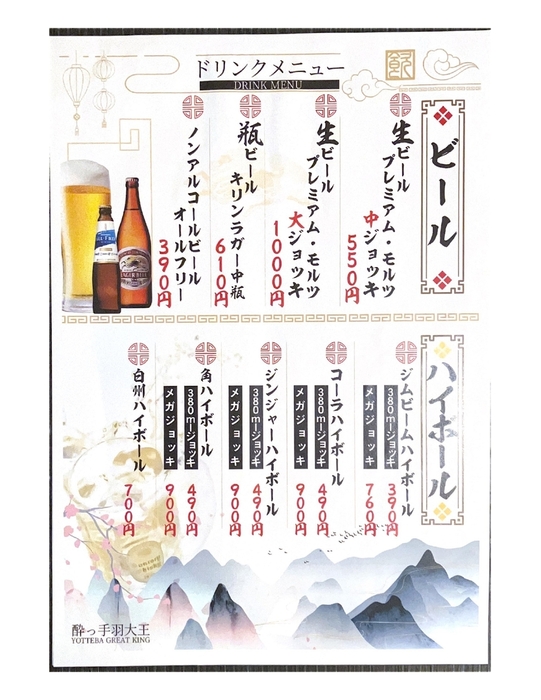 ドリンクメニュー
DRINK MENU
ビール
生ビール
プレミアム・モルツ
中ジョッキ
550円
生ビール
プレミアム・モルツ
大ジョッキ
1000円
瓶ビール
キリンラガー中瓶
610円
ノンアルコールビール
オールフリー
390円
ハイボール
ジムビームハイボール
380mlジョッキ
390円
メガジョッキ
760円
コーラハイボール
380mlジョッキ
490円
メガジョッキ
900円
ジンジャーハイボール
380mlジョッキ
490円
メガジョッキ
900円
角ハイボール
380mlジョッキ
490円
メガジョッキ
900円
白州ハイボール
700円
酔っ手羽大王
YOTTEBA GREAT KING